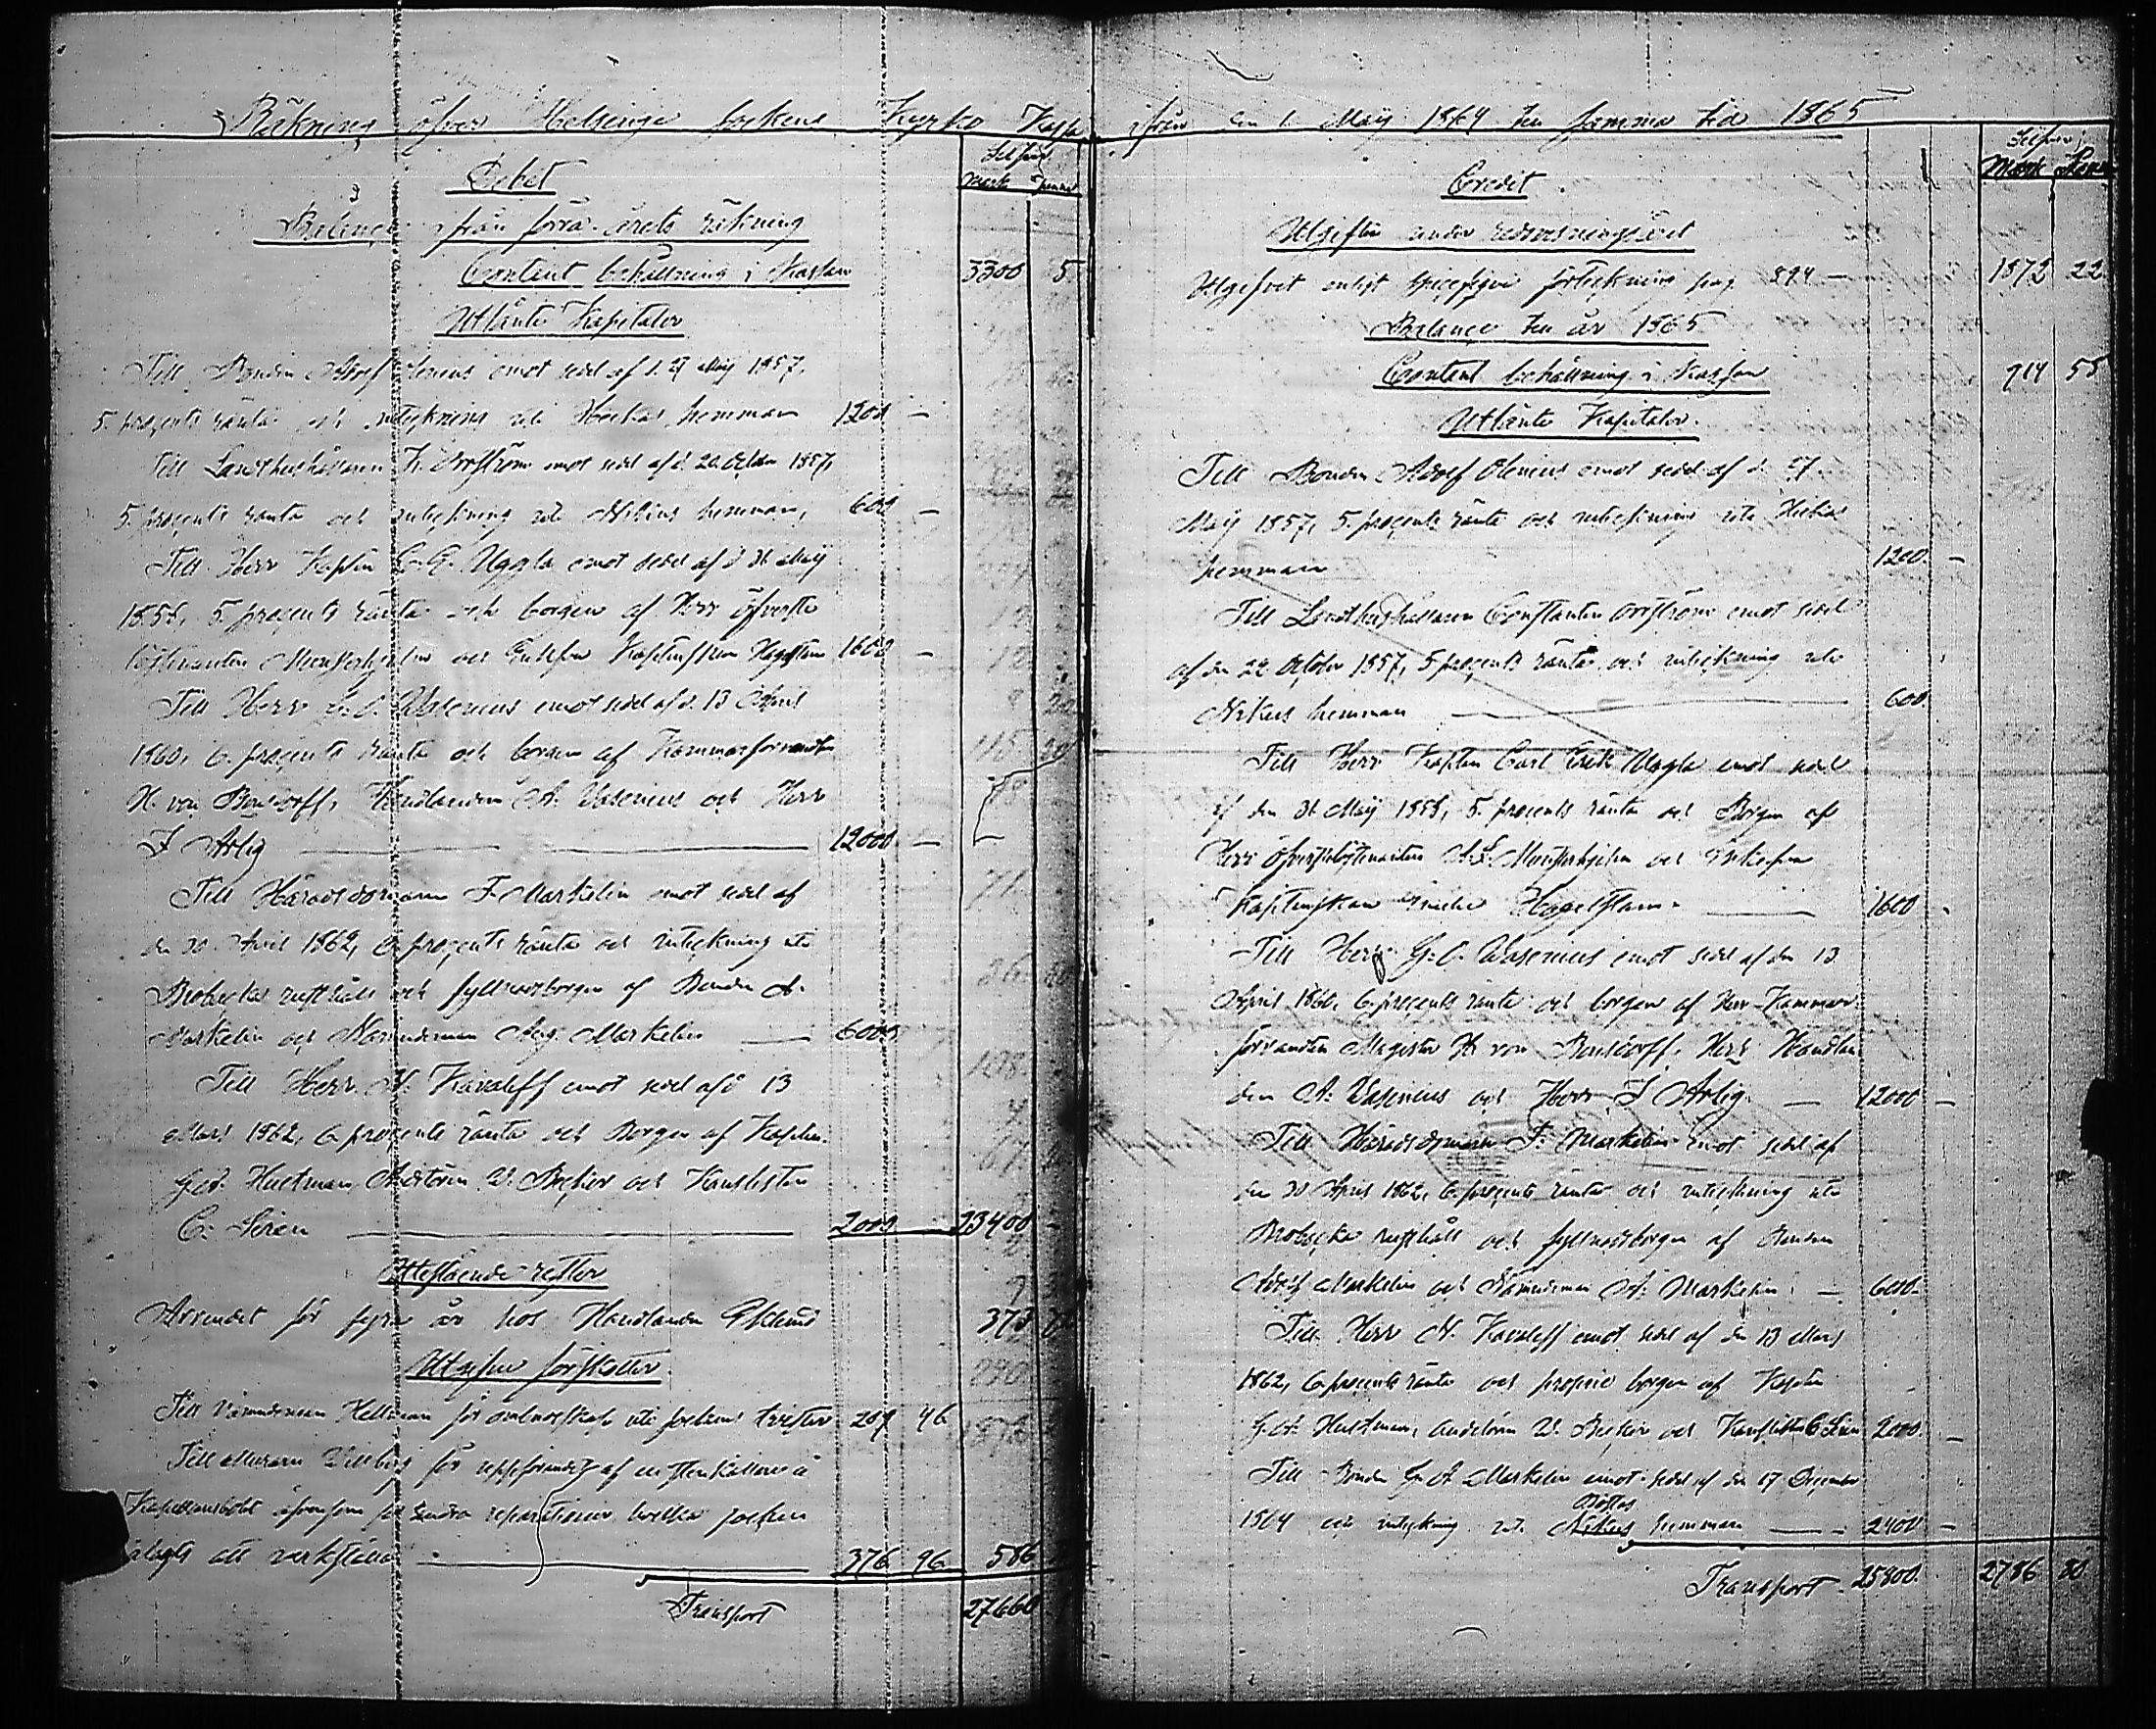 Räkning öfver Helsinge sockens Kyrko Kassa ifrån den 1 Maij 1864 till samma tid 1865
Debet
Silfver
Mark Penni
Balance från förra årets räkning
Contant behållning i Kassan 3300 5
Utlånte Kapitaler
Till Bonden Adolf Olenius emot sedel af d. 27 Maij 1857,
5. procents ränta och inteckning uti hemman 1200 —
Till Landthushållaren K. Orrström emot sedel af d. 22 October 1857,
5. procents ränta och inteckning uti Nikus hemman, 600 —
Till Herr Kapten C. E. Uggla emot sedel af d. 31 Maij
1855, 5. procents ränta och borgen af Herr Öfverste
löjtenanten Munsterhjelm och Enkefru Kaptenskan Hagelstam 1600 —
Till Herr G. O. Wasenius emot sedel af d. 13 April
1860, 6. procents ränta och borgen af Kammarförvandten
H. von Bonsdorff, Handlanden A. Wasenius och Herr
I Arlig 12000 —
Till Häradsdomaren F. Markelin emot sedel af
den 30 April 1862, 6 procents ränta och inteckning uti
Brobacka rusthåll och fyllnadsborgen af Bonden A.
Markelin och Nämndeman Aug. Markelin — 6000
Till Herr N. Kavaleff emot sedel af d 13
Mars 1862, 6. procents ränta och Borgen af Kapten
G. A. Hultman, Auditören W. Becker och Kanslisten
C. Siren 2000 23400
Utestående rester
Arrendet för fyra år hos Handlanden Eklund 373
Utgifne förskotter
Till Nämndeman Hellman för ombudskap uti sockens tvister 209 46
Till Muraren Willberg för uppförandet af en stenkällare å
Kapellansbolet äfvensom för andra reparationer hvilka socken
ålagts att verkställa 376 96 586
Transport 27660
Credit
Silfver
Mark Penni
Utgifter under redovisningsåret
Utgifvet enligt specifique förteckning pag. 894 — 1872 22
Balance till år 1865
Contant behållning i Kassan 914 58
Utlånte Kapitaler.
Till Bonden Adolf Olenius emot sedel af d. 27
Maij 1857, 5. procents ränta och inteckning uti
hemman 1200 —
Till Landthushållaren Constantin Orrström emot sedel
af den 22 October 1857, 5 procents ränta och inteckning uti
Nikus hemman 600
Till Herr Kapten Carl Erik Uggla emot sedel
af den 31 Maij 1855, 5. procents ränta och Borgen af
Herr Öfverstelöjtenanten A. L. Munsterhjelm och Enkefru
Kaptenskan Hagelstam. 1600 -
Till Herr G. O. Wasenius emot sedel af den 13
April 1860, 6. procents ränta och borgen af Herr Kammar
förvandten Magister H. von Bonsdorff, Herr Handlan
den A. Wasenius och Herr I Arlig — 12000 —
Till Häradsdomaren F. Markelin emot sedel af
den 30 April 1862, 6. procents ränta och inteckning uti
Brobacka rusthåll och fyllnadsborgen af Bonden
Adolf Markelin och Nämndeman A. Markelin. — 6000.
Till Herr N. Kavaleff emot sedel af den 13 Mars
1862, 6. procents ränta och proprie borgen af Kapten
G. A. Hultman, Auditören W. Becker och Kanslisten C. Siren 2000. —
Till Bonden G. A Markelin emot sedel af den 17 December
Böstas
1864 och inteckning uti Nikus hemman — 2400 —
Transport 25800. 2786 80